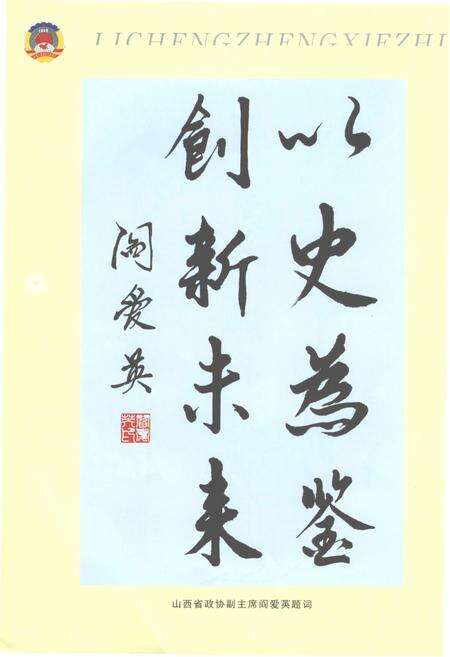 LICHENGZHENGXIEZHI
以史為鉴
創新未来
阎爱英
山西省政协副主席阎爱英题词